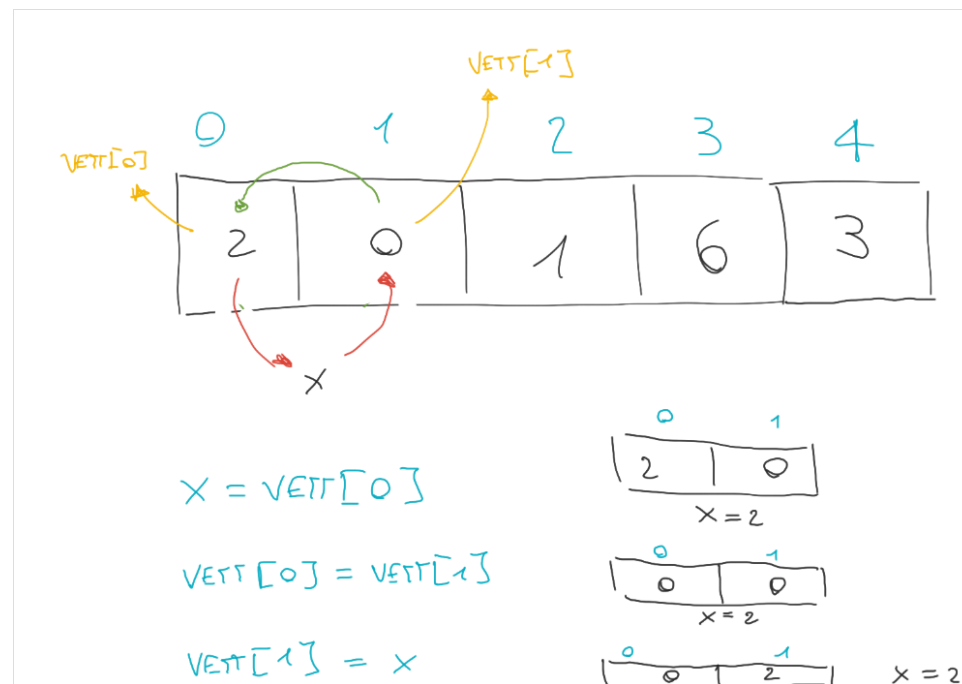 VETT[1]
0 1 2 3 4
VETT[0]
2 0 1 6 3
X
0 1
X = VETT[0]
2 0
X = 2
0 1
VETT[0] = VETT[1]
0 0
X = 2
0 1
VETT[1] = X
0 2
X = 2